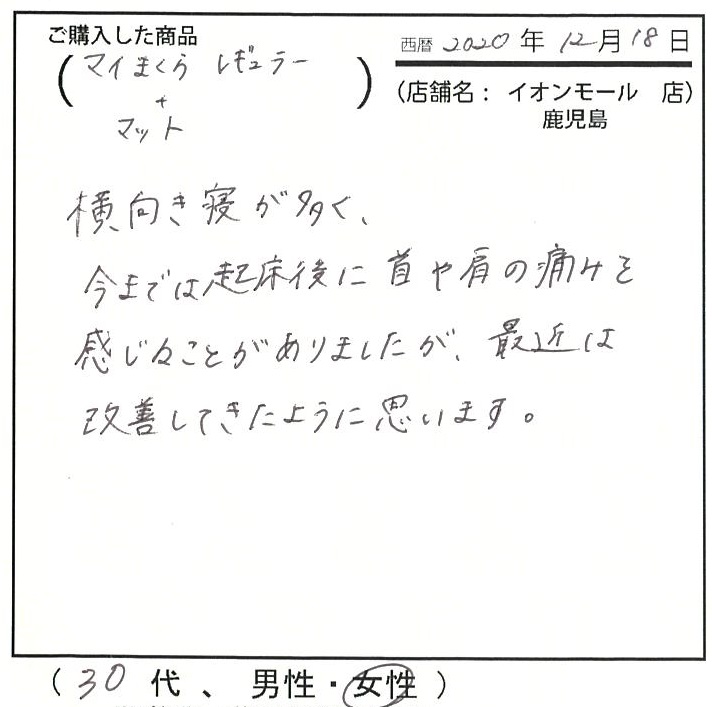 ご購入した商品
西暦 2020 年 12 月 18 日
(マイまくら レギュラー
+
マット)
(店舗名: イオンモール 店)
鹿児島
横向き寝が多く、
今までは起床後に首や肩の痛みを
感じることがありましたが、最近は
改善してきたように思います。
(30 代 、 男性・女性)